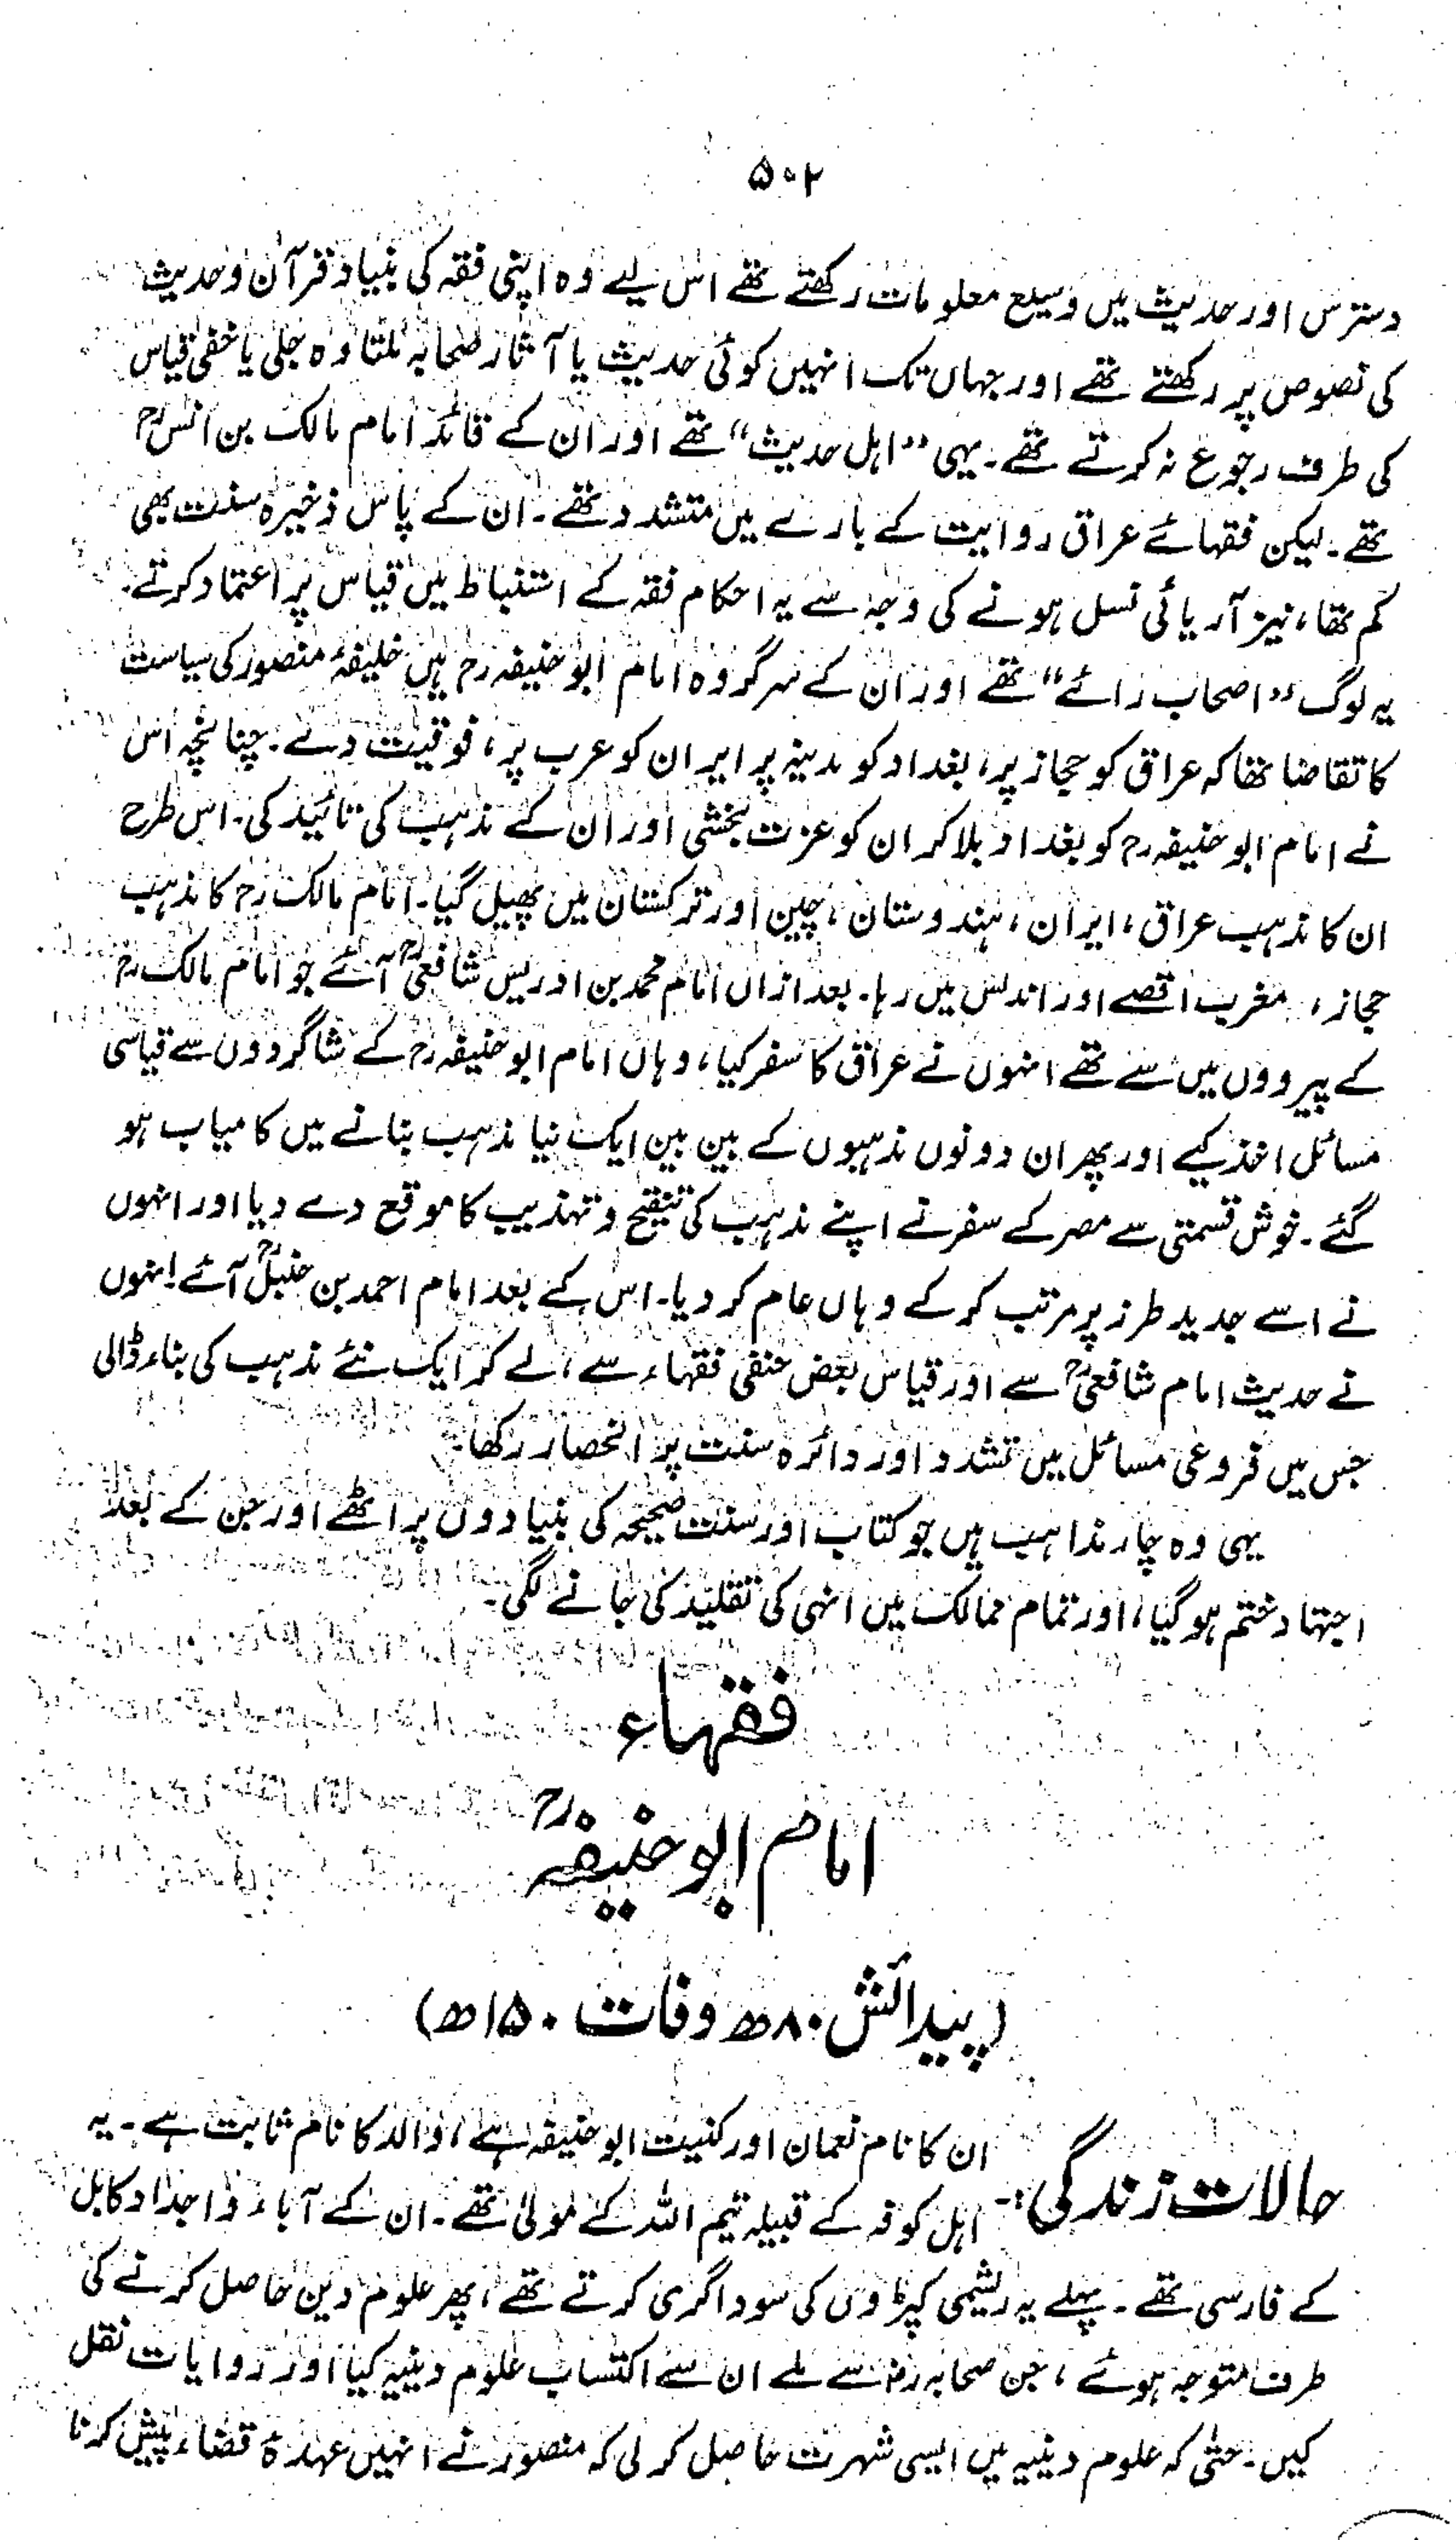 ۵۰۲
دسترس اور حدیث میں وسیع معلومات رکھتے تھے اس لیے وہ اپنی فقہ کی بنیاد قرآن و حدیث
کی نصوص پر رکھتے تھے اور جہاں تک انہیں کوئی حدیث یا آثار صحابہ ملتا وہ جلی یا خفی قیاس
کی طرف رجوع نہ کرتے تھے۔ یہی ”اہل حدیث“ تھے اور ان کے قائد امام مالک بن انسؒ
تھے۔ لیکن فقہائے عراق روایت کے بارے میں متشدد تھے۔ ان کے پاس ذخیرہ سنت بھی
کم تھا، نیز آریائی نسل ہونے کی وجہ سے یہ احکام فقہ کے استنباط میں قیاس پر اعتماد کرتے۔
یہ لوگ ”اصحاب رائے“ تھے اور ان کے سرگروہ امام ابو حنیفہ رح ہیں خلیفۂ منصور کی سیاست
کا تقاضا تھا کہ عراق کو حجاز پر، بغداد کو مدینہ پر ایران کو عرب پر، فوقیت دے۔ چنانچہ اس
نے امام ابو حنیفہ رح کو بغداد بلا کر ان کو عزت بخشی اور ان کے مذہب کی تائید کی۔ اس طرح
ان کا مذہب عراق، ایران، ہندوستان، چین اور ترکستان میں پھیل گیا۔ امام مالک رح کا مذہب
حجاز، مغرب اقصے اور اندلس میں رہا۔ بعد ازاں امام محمد بن ادریس شافعیؒ آئے جو امام مالک رح
کے پیرووں میں سے تھے انہوں نے عراق کا سفر کیا، وہاں امام ابو حنیفہ رح کے شاگردوں سے قیاسی
مسائل اخذ کیے اور پھر ان دونوں مذہبوں کے بین بین ایک نیا مذہب بنانے میں کامیاب ہو
گئے۔ خوش قسمتی سے مصر کے سفر نے اپنے مذہب کی تنقیح و تہذیب کا موقع دے دیا اور انہوں
نے اسے جدید طرز پر مرتب کر کے وہاں عام کر دیا۔ اس کے بعد امام احمد بن حنبلؒ آئے انہوں
نے حدیث امام شافعیؒ سے اور قیاس بعض حنفی فقہاء سے، لے کر ایک نئے مذہب کی بناء ڈالی
جس میں فروعی مسائل میں تشدد اور دائرہ سنت پر انحصار رکھا۔
یہی وہ چار مذاہب ہیں جو کتاب اور سنت صحیحہ کی بنیادوں پر اٹھے اور جن کے بعد
اجتہاد ختم ہو گیا، اور تمام ممالک میں انہی کی تقلید کی جانے لگی۔
فقہاء
امام ابو حنیفہؒ
(پیدائش ۸۰ھ وفات ۱۵۰ھ)
حالات زندگی:- ان کا نام نعمان اور کنیت ابو حنیفہ ہے، والد کا نام ثابت ہے۔ یہ
اہل کوفہ کے قبیلہ تیم اللہ کے مولیٰ تھے۔ ان کے آباء و اجداد کابل
کے فارسی تھے۔ پہلے یہ ریشمی کپڑوں کی سوداگری کرتے تھے، پھر علوم دین حاصل کرنے کی
طرف متوجہ ہوئے، جن صحابہ رض سے ملے ان سے اکتساب علوم دینیہ کیا اور روایات نقل
کیں۔ حتٰی کہ علوم دینیہ میں ایسی شہرت حاصل کر لی کہ منصور نے انہیں عہدۂ قضاء پیش کرنا